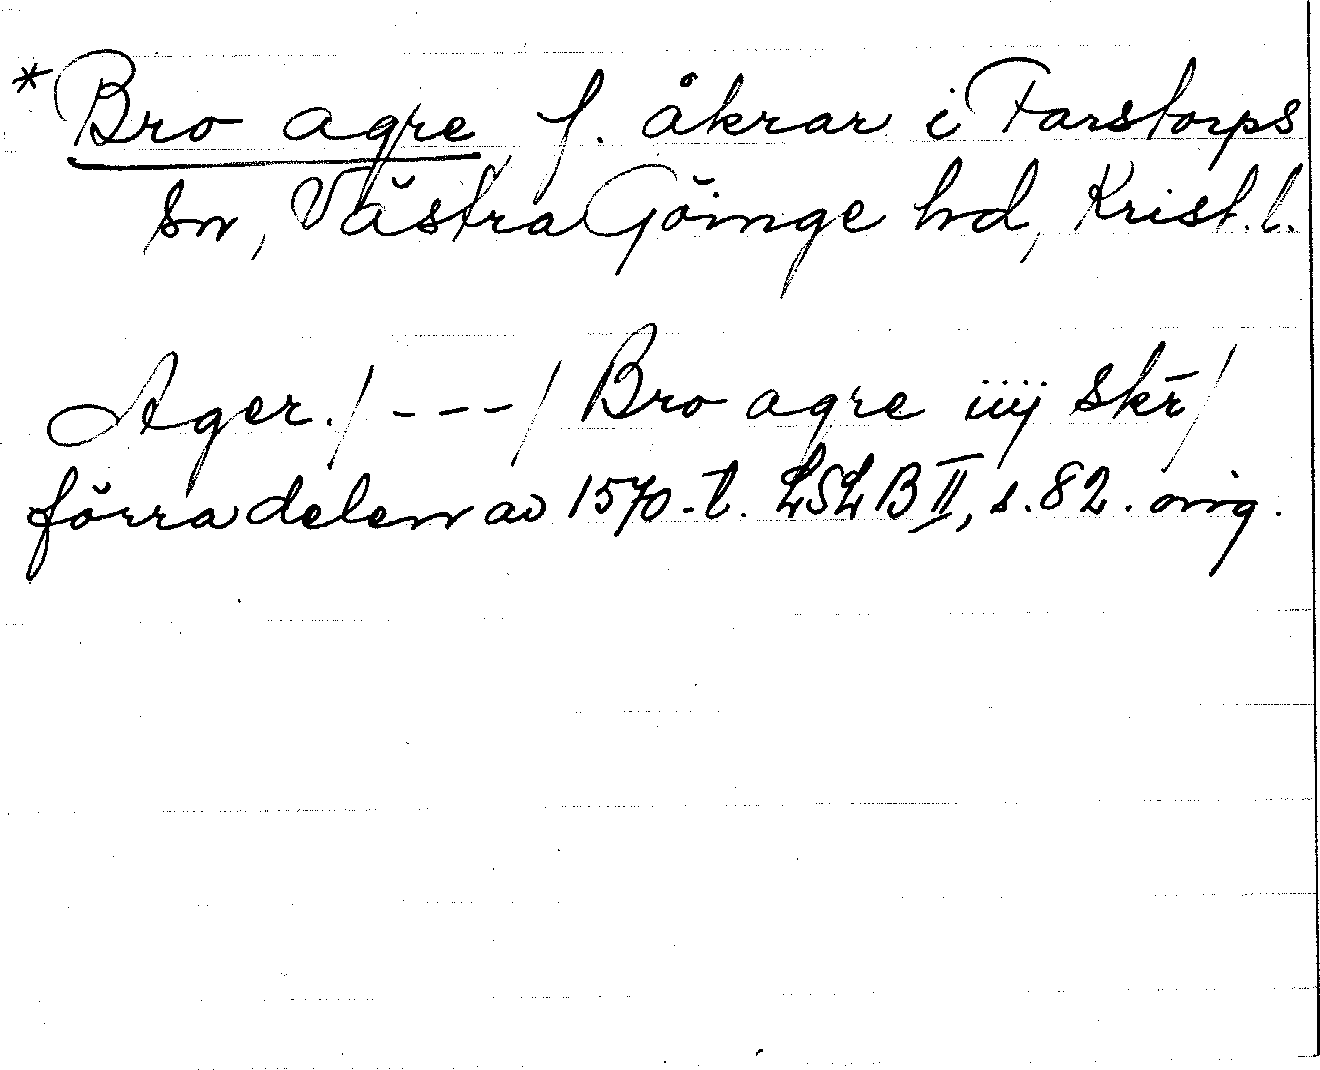 *Bro agre f. åkrar i Farstorps
sn, Västra Göinge hd, Krist. l.
Ager./---/ Bro agre iiij skr̄/
förra delen av 1570-t. LSLB II, s. 82. orig.